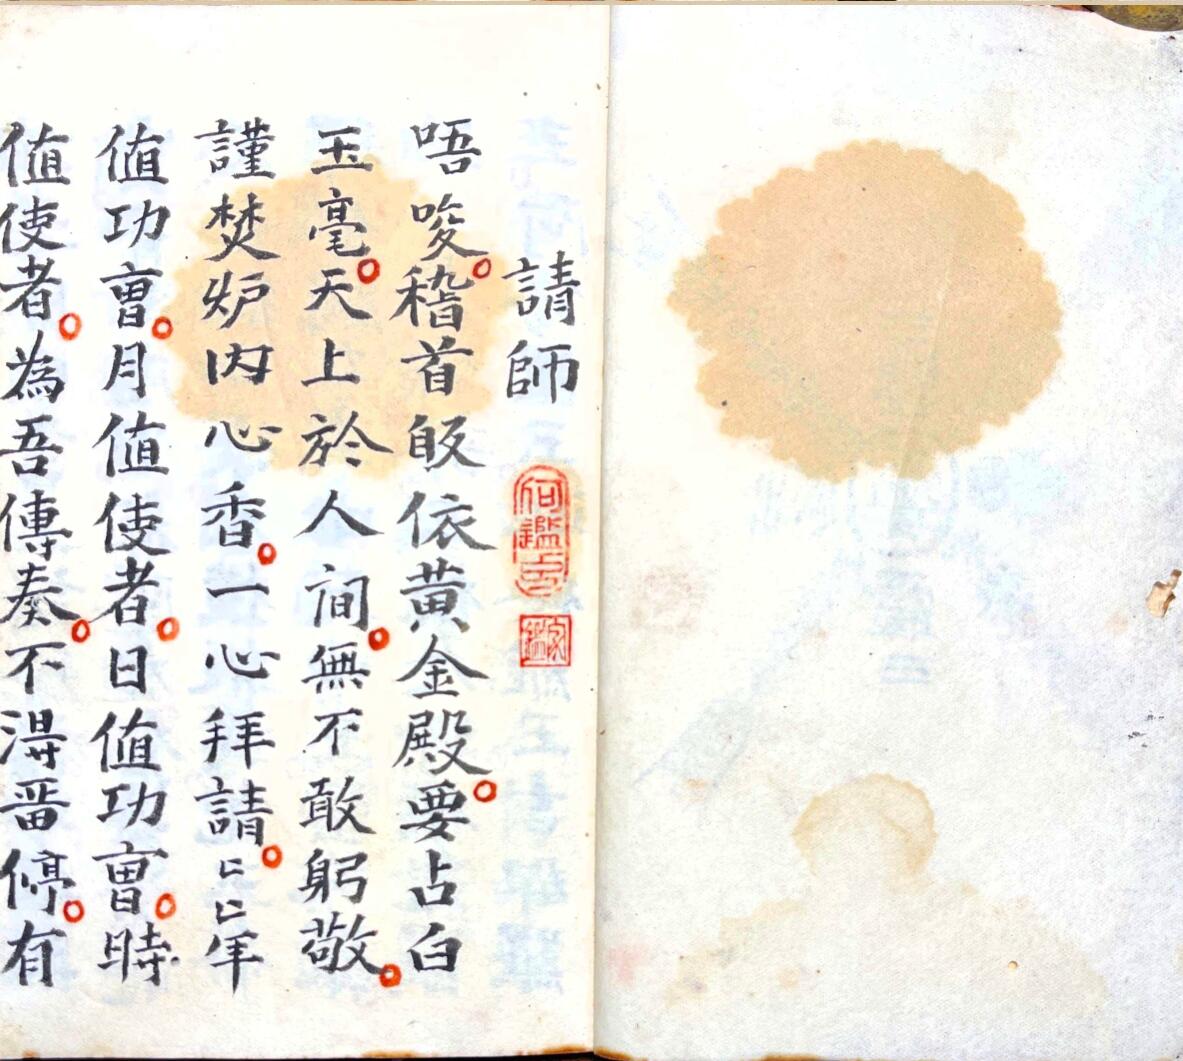 請師
何鑑印
唔唆。稽首皈依黃金殿。要占白
玉毫。天上於人间。無不敢躬敬。
謹焚炉内心香。一心拜請。〻〻年
值功曺。月值使者。日值功曺。時
值使者。為吾傳奏。不淂畱停。有